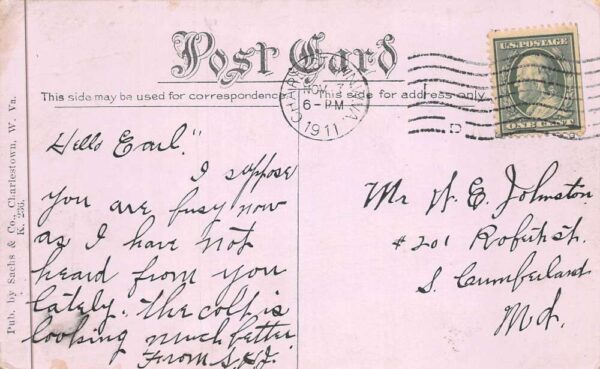 Post Card
This side may be used for correspondence This side for address only.
NOV
6-PM
1911
U.S. POSTAGE
ONE CENT
Pub. by Sachs & Co., Charlestown, W. Va.
Hello Earl."
I suppose
you are busy now
as I have not
heard from you
lately. The colt is
looking much better
From
Mr W. E. Johnston
#201 St.
S. Cumberland
Md.